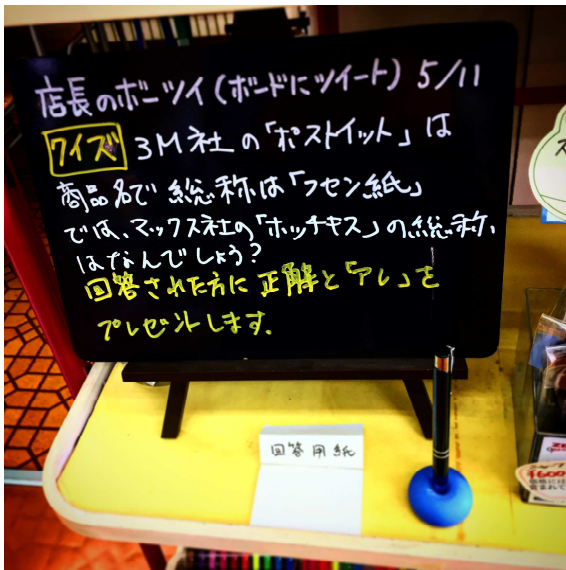 店長のボーツイ(ボードにツイート) 5/11
クイズ 3M社の「ポストイット」は
商品名で 総称は「フセン紙」
では、マックス社の「ホッチキス」の総称、
はなんでしょう?
回答された方に正解と「アレ」を
プレゼントします.
回答用紙